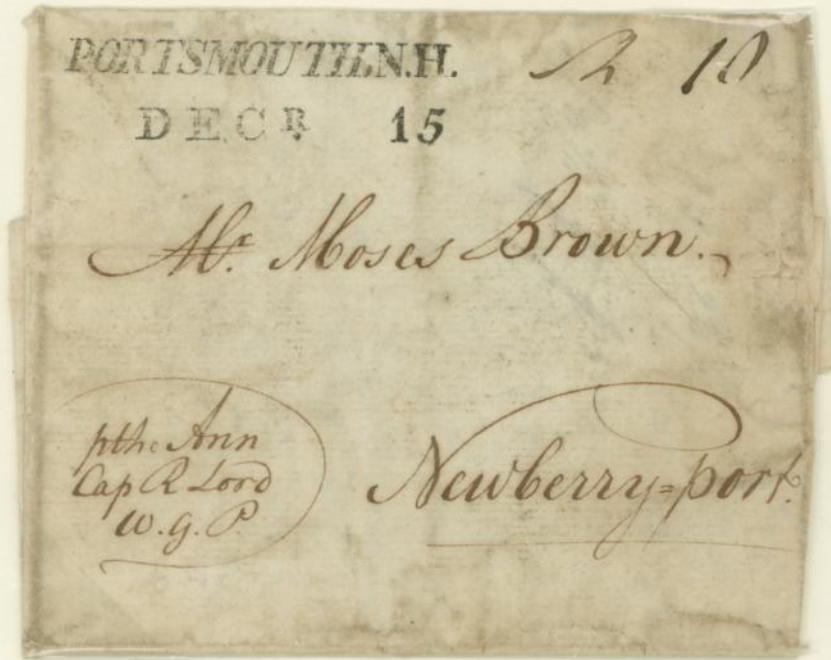 PORTSMOUTH.N.H. 10
DECR 15
Mr. Moses Brown.
pthe Ann
Cap R Lord
W.G.P.
Newberry=port.